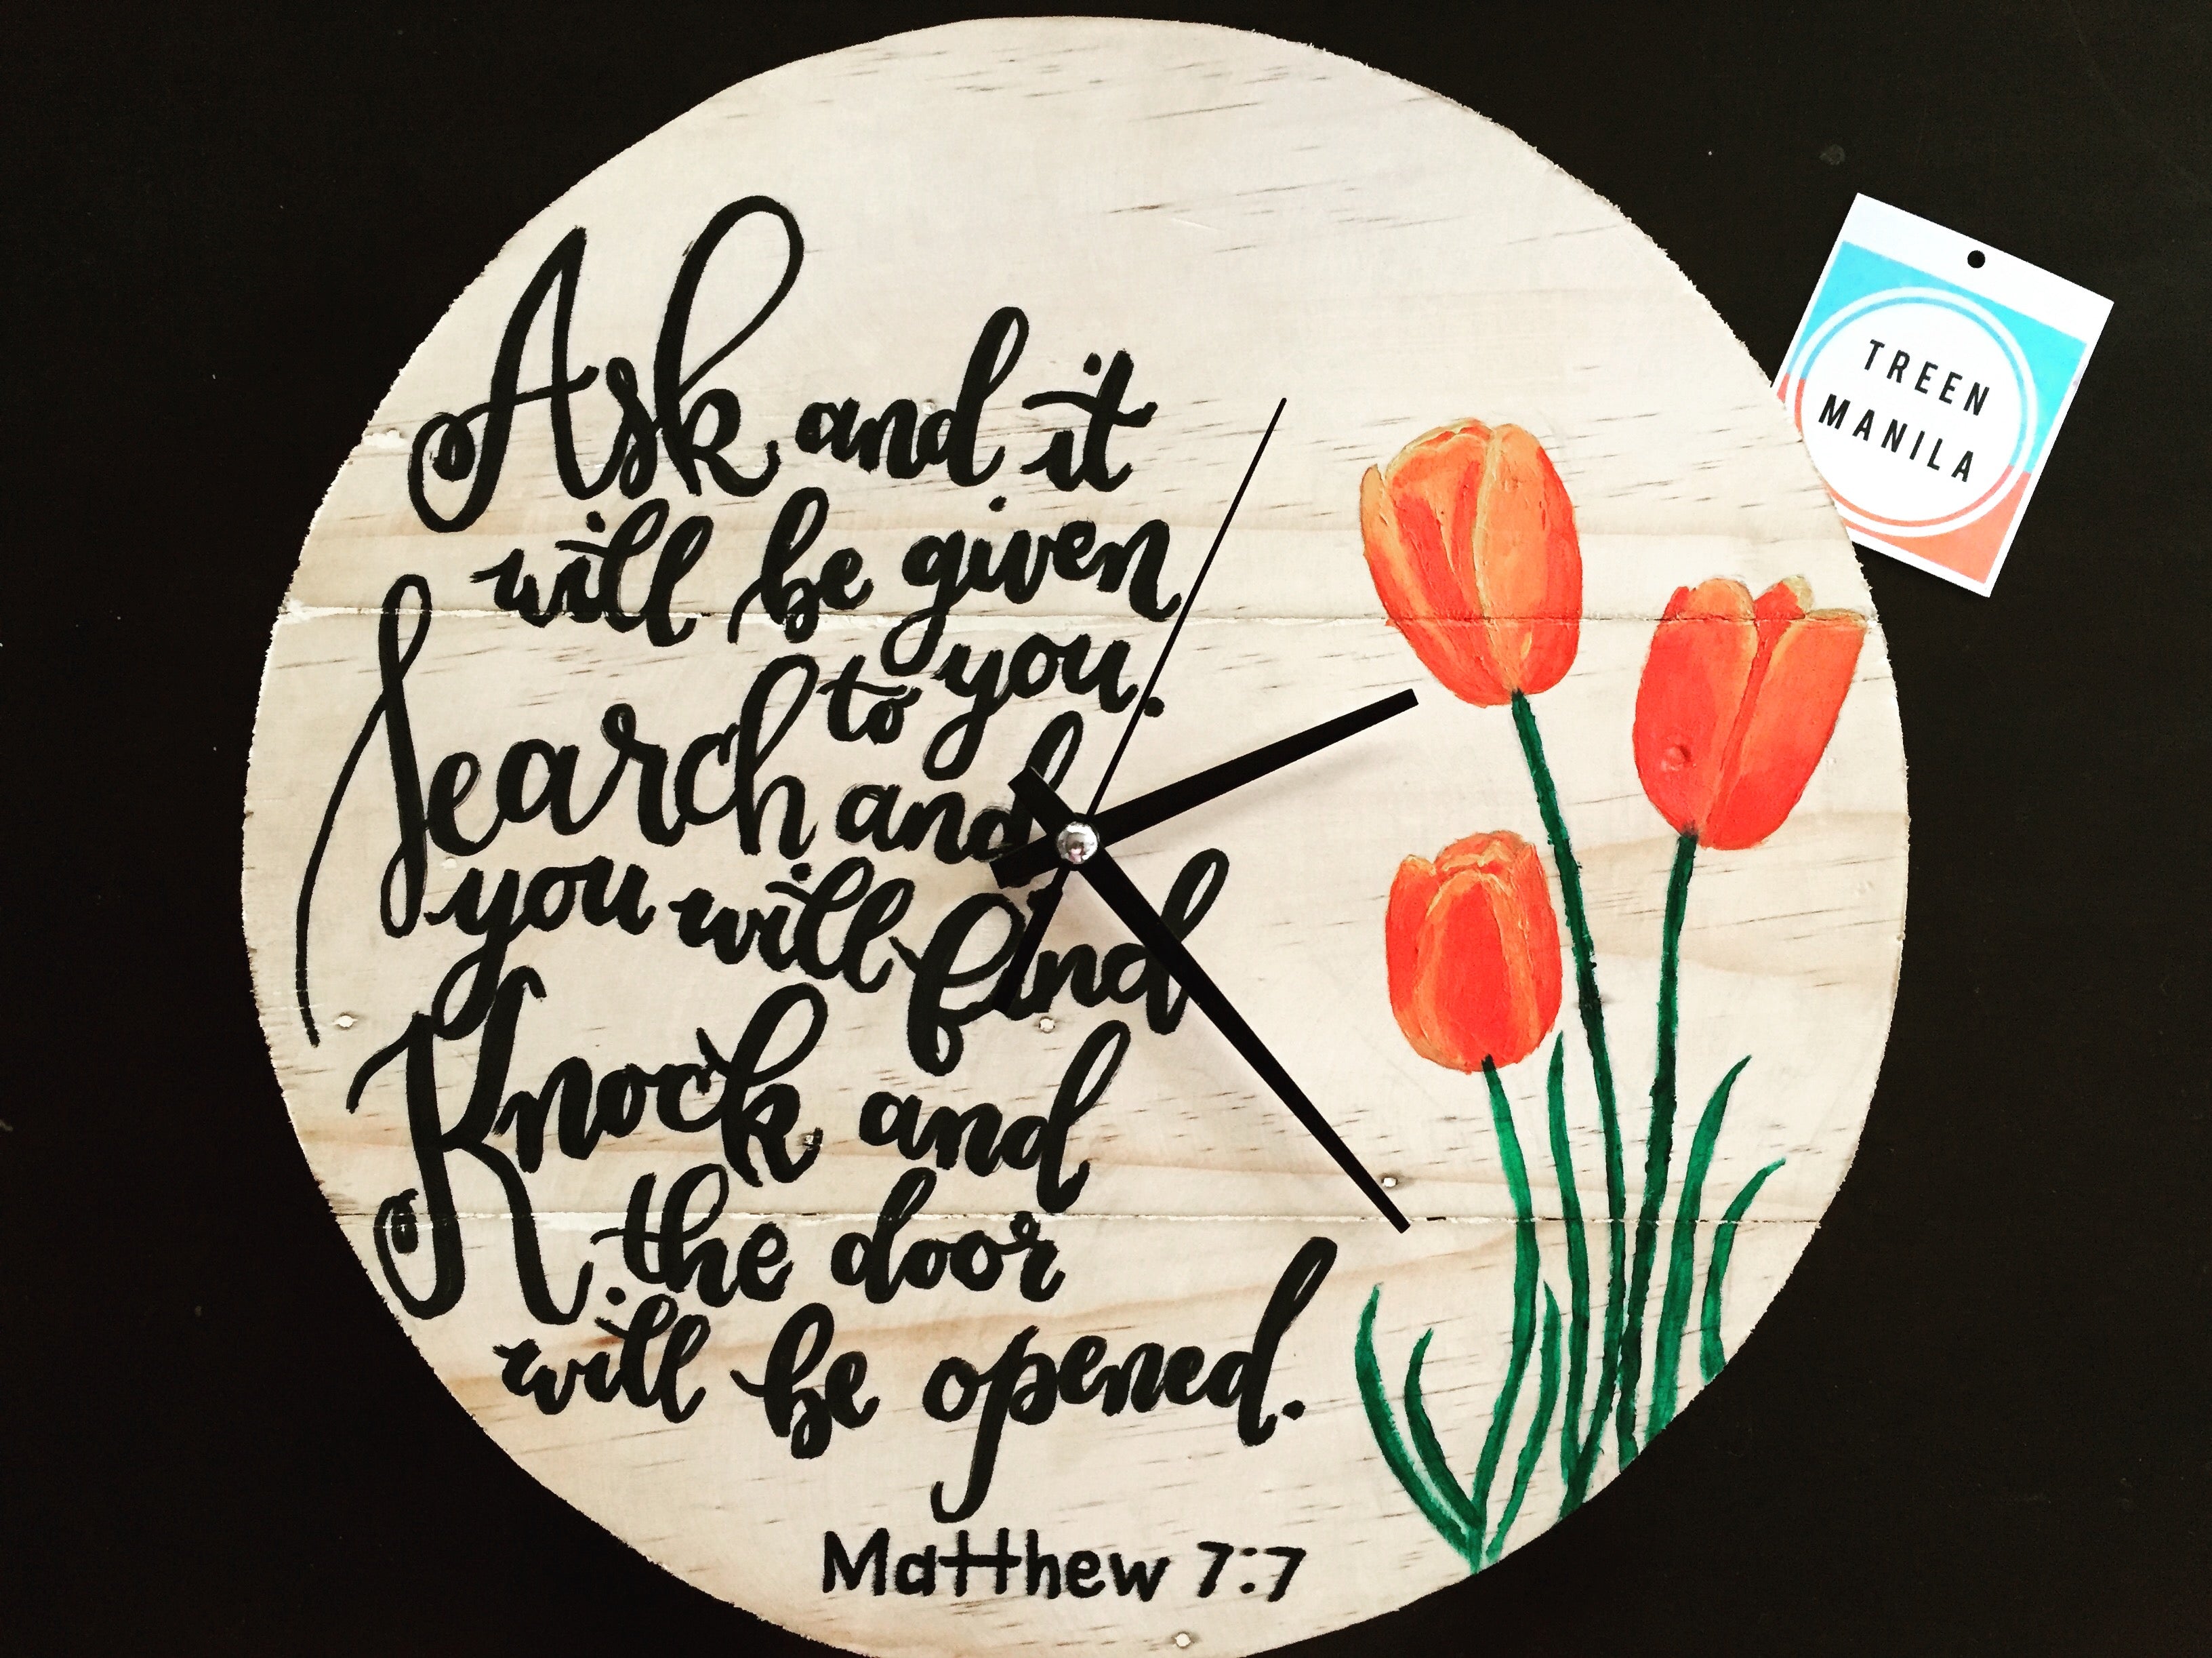 Ask and it
will be given
to you.
Search and
you will find
Knock and
the door
will be opened.
Matthew 7:7
TREEN
MANILA